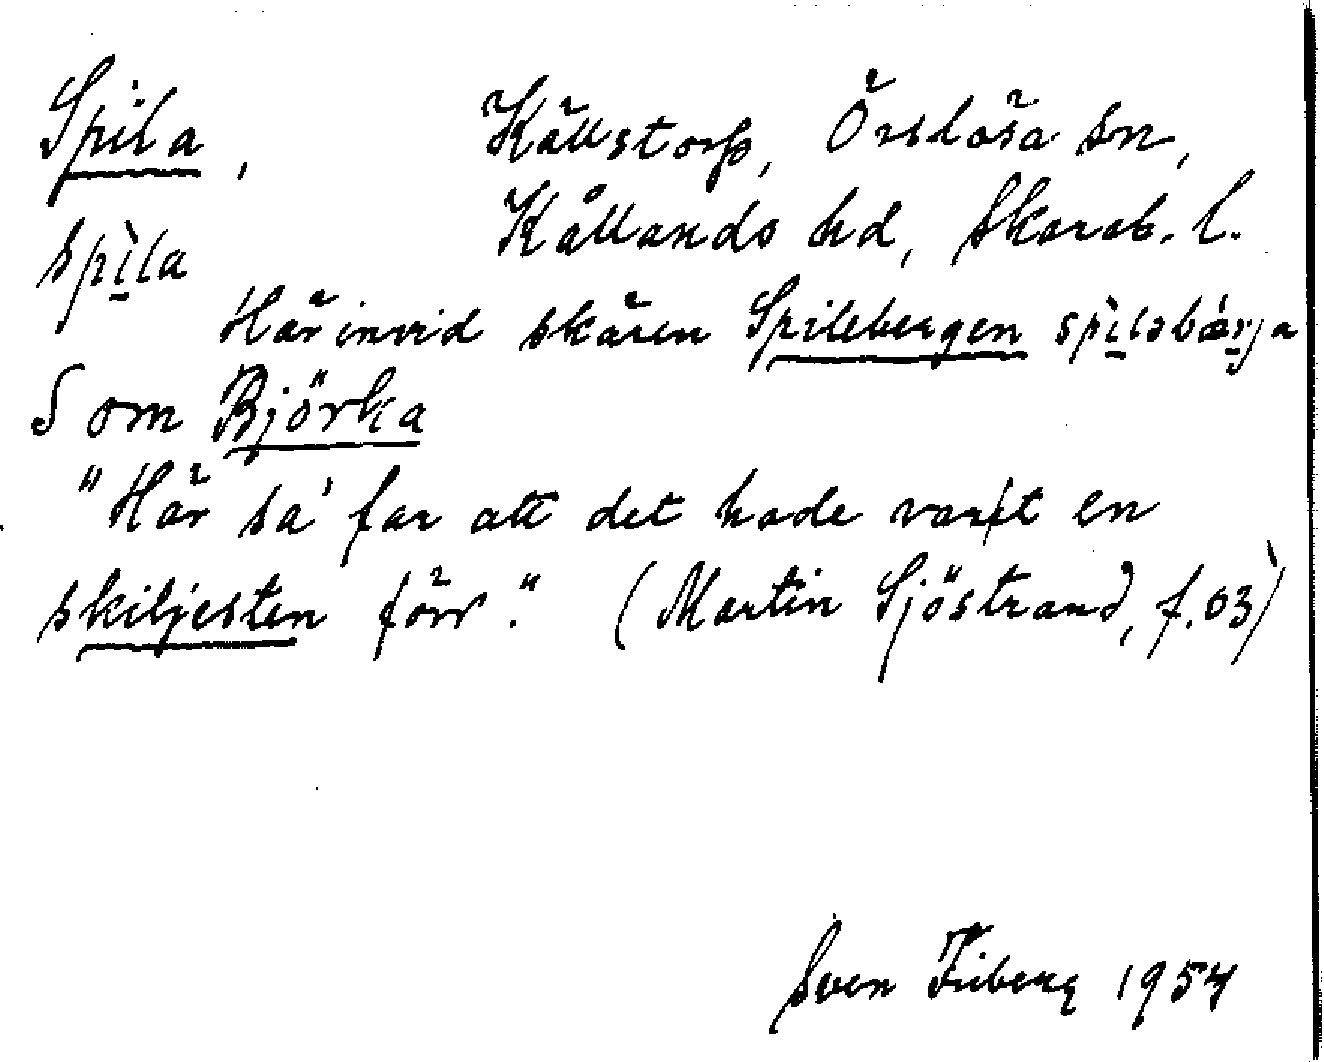 Spila, Källstorp, Örslösa sn,
spìla Kållands hd, Skarab. l.
Härinvid skären Spilebergen spìləbærja
S om Björka
"Här sa' far att det hade varit en
skiljesten förr." (Martin Sjöstrand, f. 03)
Sven Friberg 1954